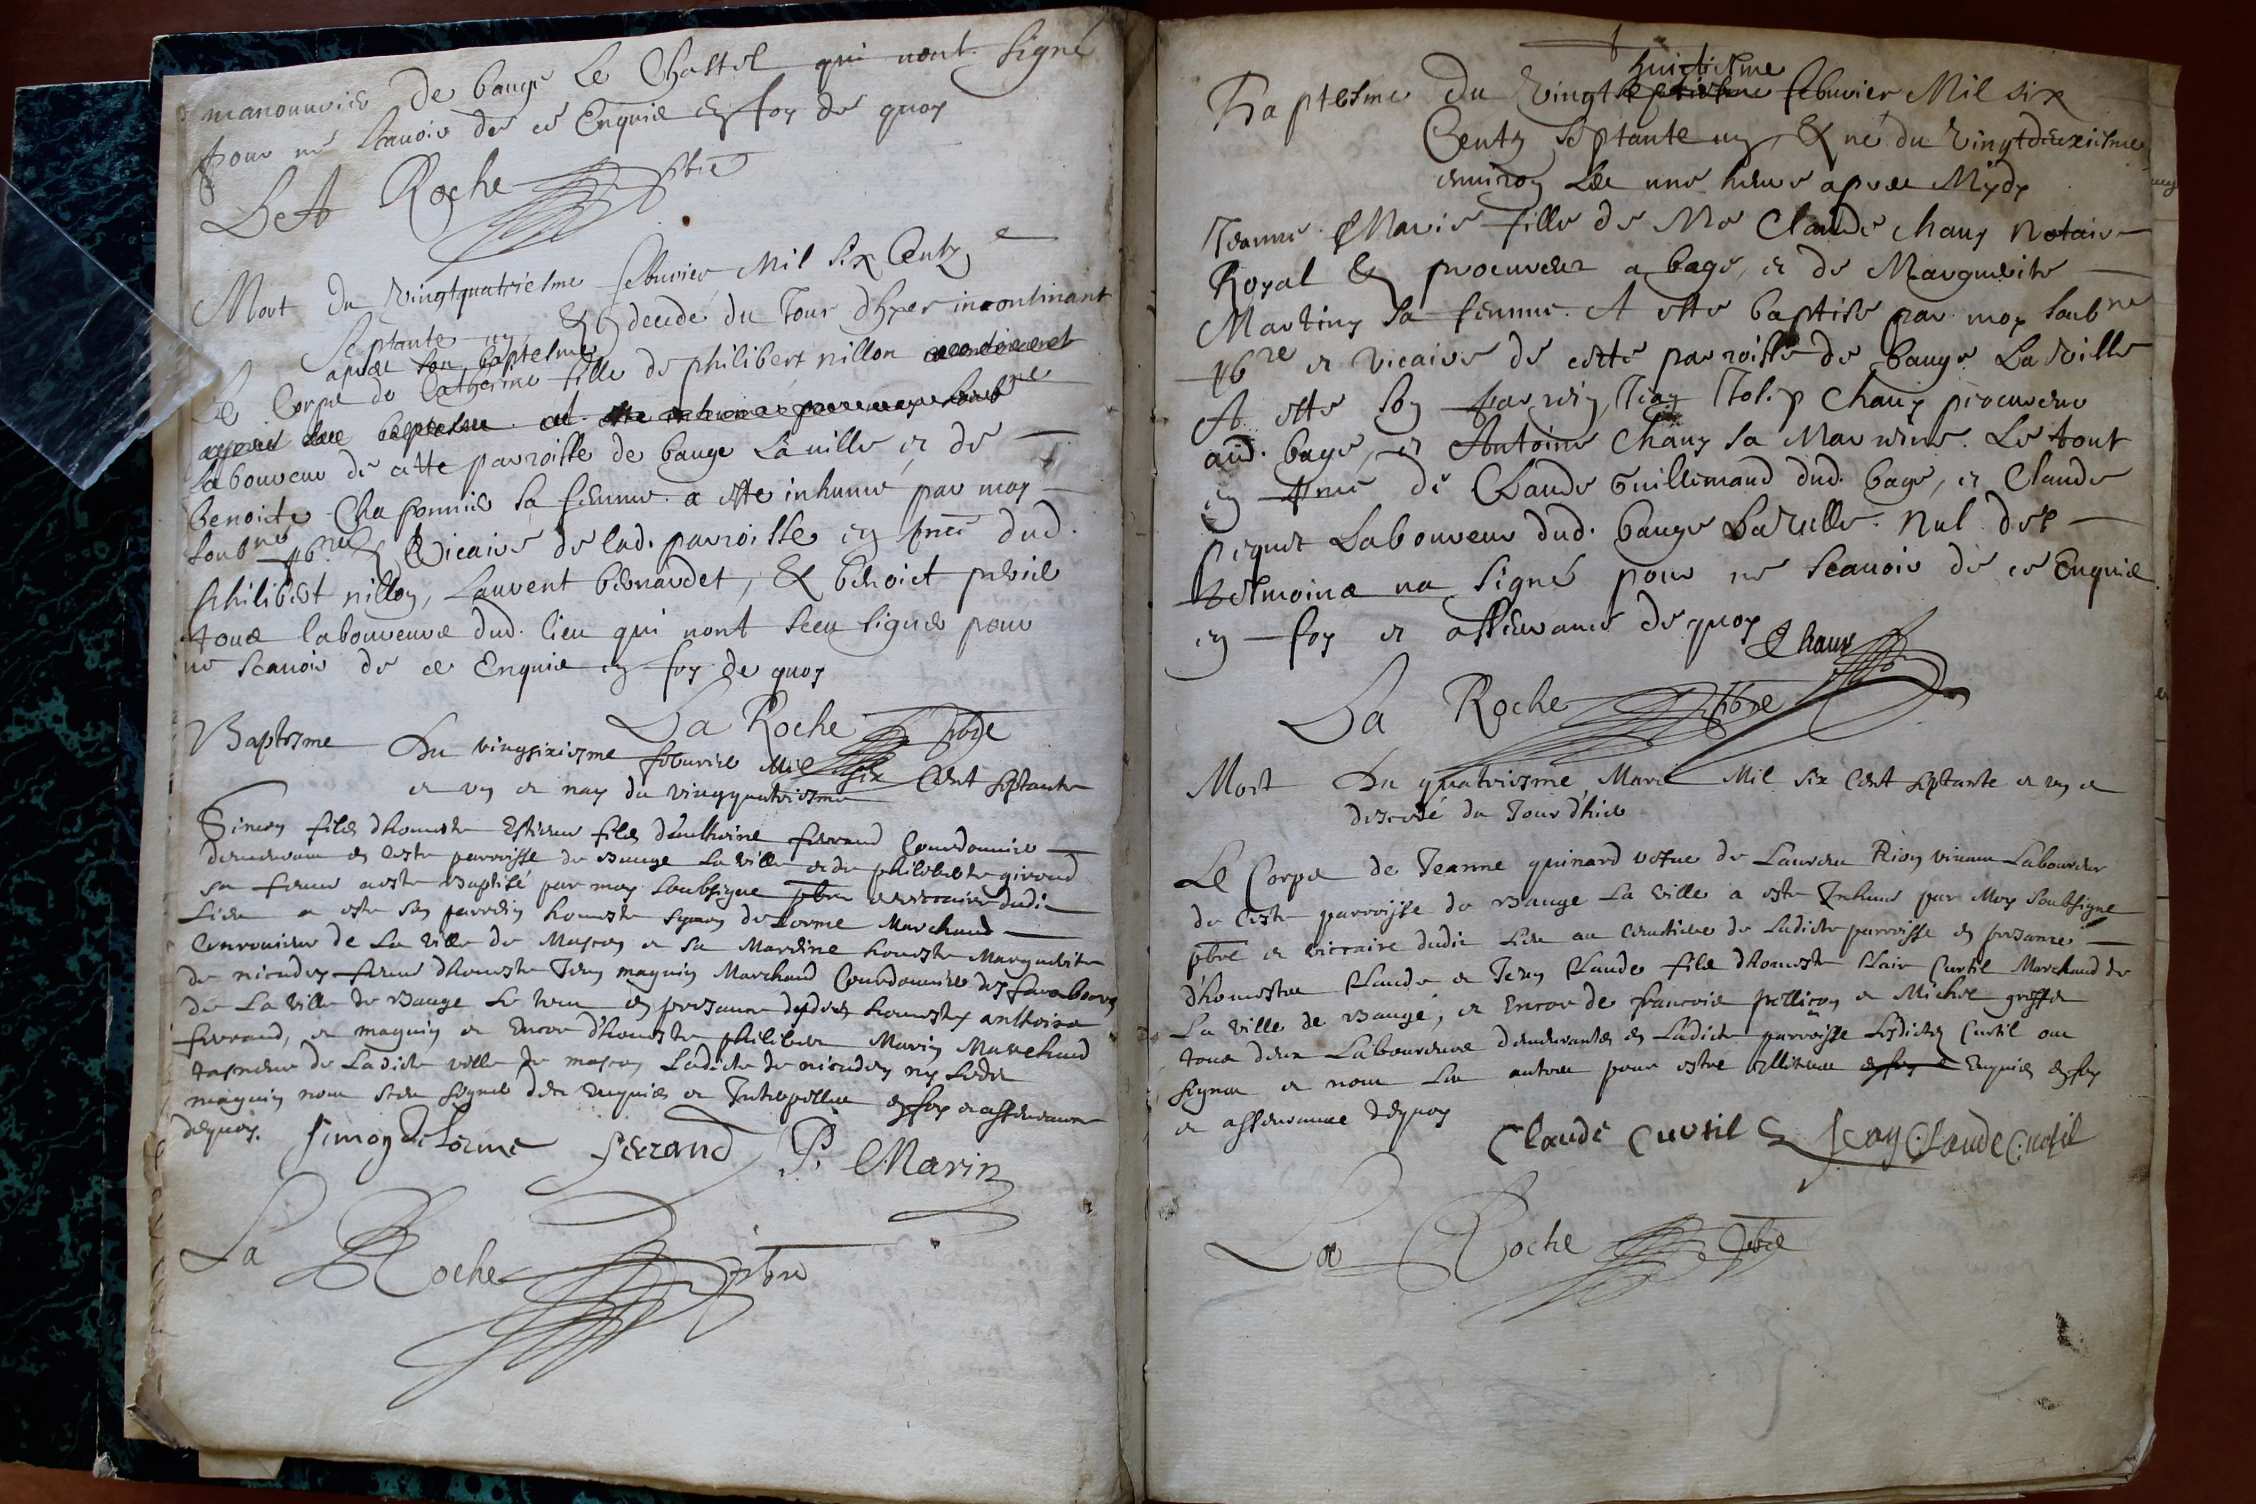 manouurier de bauge Le Chastel qui nont signé
pour ne scauoir de ce Enquis en foy de quoy
La Roche pbre
Mort du vingtquatriesme febuvier Mil six Centz
septante un & decedé du Jour dhyer incontinant
apres son baptesme
Le Corps de Catherine fille de philibert nillon
laboureur de cette parroisse de bauge La ville et de
benoiste Chaponnier sa femme a esté inhumé par moy
soubne pbre & vicaire de lad. parroisse en pnce dud.
philibert nillon, Laurent bernardet, & benoict
tous laboureurs dud. lieu qui nont sceu signer pour
ne scauoir de ce Enquis en foy de quoy
La Roche pbre
Baptesme Du vingsixiesme febvrier Mil six Cent septante
et un et nay du vingquatriesme
Simon fils dhoneste Estienne fils danthoine ferrand Courdonnier
demeurant en ceste parroisse de Bauge La ville et de philiberte giroud
sa femme a este Baptisé par moy soubsigne pbre et viccaire dudit
Lieu a este son parrein honeste symon de Lorme Marchand
de La ville de Mascon et sa Mareine honeste Marguerite
de nicudey femme dhoneste Jean maguin Marchand Courdonnier des faurbourg
de La ville de Bauge Le tout en presance desdits honestes anthoine
ferrand, et maguin et Encor d'honeste philibert Marin Marchand
taneur de Ladicte ville de mascon Ladicte de nicudey ny Ledit
maguin nont sceu signer de ce Enquis et Interpellés en foy et asseurance
dequoy. simon de Lorme ferrand P. Marin
La Roche pbre
huictiesme
Baptesme du vingt febuvier Mil six
Centz septante un & né du vingtdeuxiesme
environ les une heure apres Mydy
Jeanne Marie fille de Me Claude Chauy Notaire
Royal & procureur a bage, et de Marguerite
Martiny sa femme. A esté baptisé par moy soubne
pbre et vicaire de cette parroisse de bauge La ville
A esté son parrein, Jean Chauy procureur
aud. bage, et Antoine Chauy sa Marreine. Le tout
en pnce de Claude Guillemaud dud. bage, et Claude
piquet Laboureur dud. bauge La ville. Nul des
tesmoins na signé pour ne scauoir de ce Enquis
en foy et asseurance de quoy Chauy
La Roche pbre
Mort Du quatriesme Mars Mil six Cent septante et un et
decedé du Jourdhier
Le Corps de Jeanne guinard vefue de Laurent Rion viuant Laboureur
de ceste parroisse de Bauge La ville a este Inhumé par Moy soubsigne
pbre et viccaire dudit Lieu au cimetiere de Ladicte parroisse en presance
d'honestes Claude et Jean Claude fils dhoneste Clair Curtil Marchand de
La ville de Baugé, et Encor de francois pellicon et Michel
tous deux Laboureurs demeurantz en Ladicte parroisse Lesdictes Curtil ont
signés et non Les autres pour estre Illiterés Enquis en foy
et asseurance dequoy
Claude Curtil Jean Claude Curtil
La Roche pbre